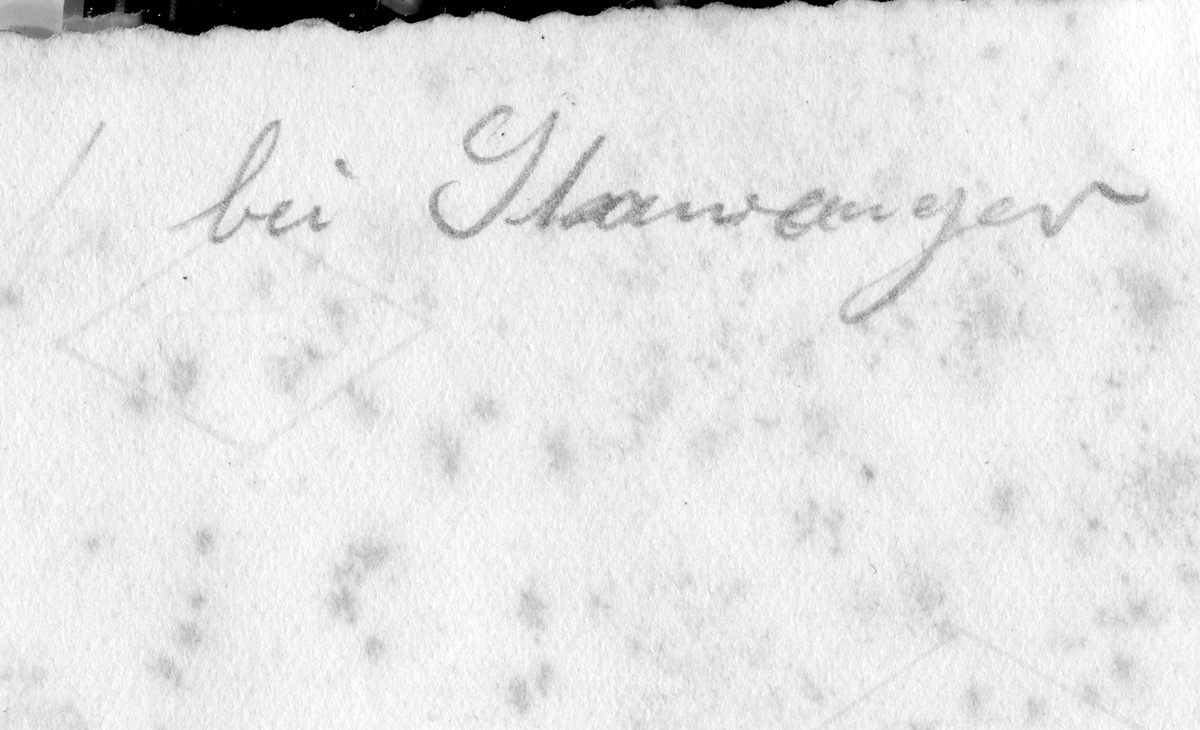 bei Stawanger